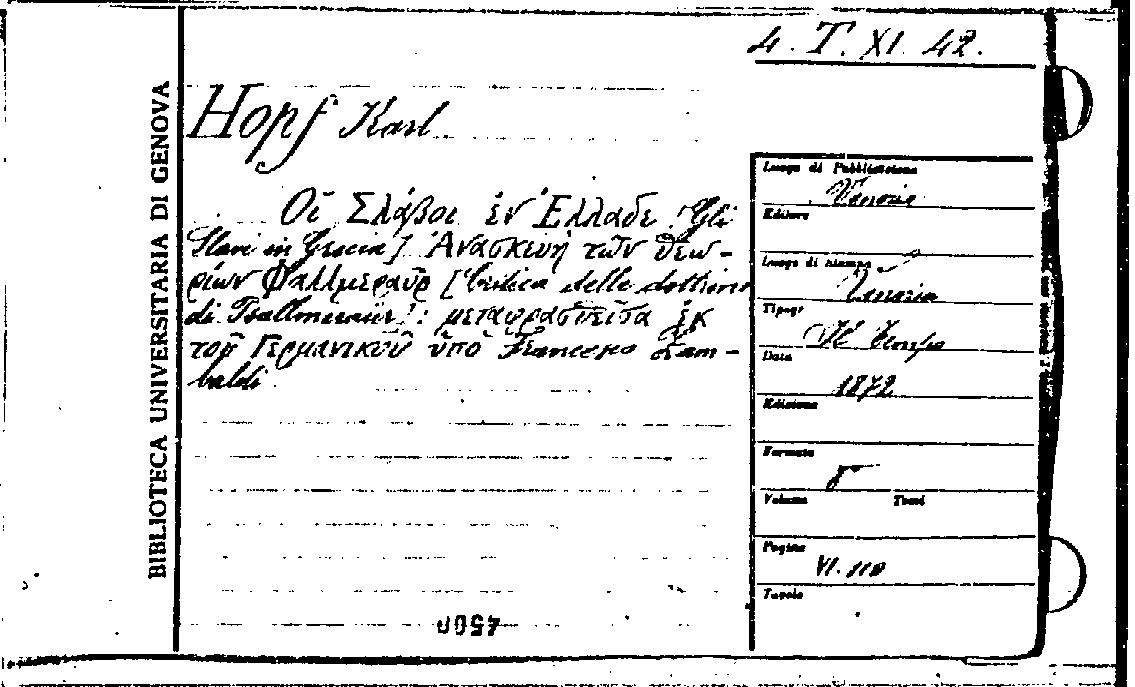 4. T. XI. 42.
BIBLIOTECA UNIVERSITARIA DI GENOVA
Hopf Karl
Οἱ Σλάβοι ἐν Ἑλλάδε [Gli
Slavi in Grecia]. Ἀνασκευὴ τῶν θεω-
ριῶν Φαλλμεραῦρ [Critica delle dottrine
di Fsallmeraüer]: μεταφρασθεῖσα ἐκ
τοῦ Γερμανικοῦ ὑπὸ Francesco Zam-
baldi.
Luogo di Pubblicazione
Venezia
Editore
Luogo di stampa
Venezia
Tipogr
Il Tempo
Data
1872
Edizione
Formato
8°
Volume Tomi
Pagine
VI. 110
Tavole